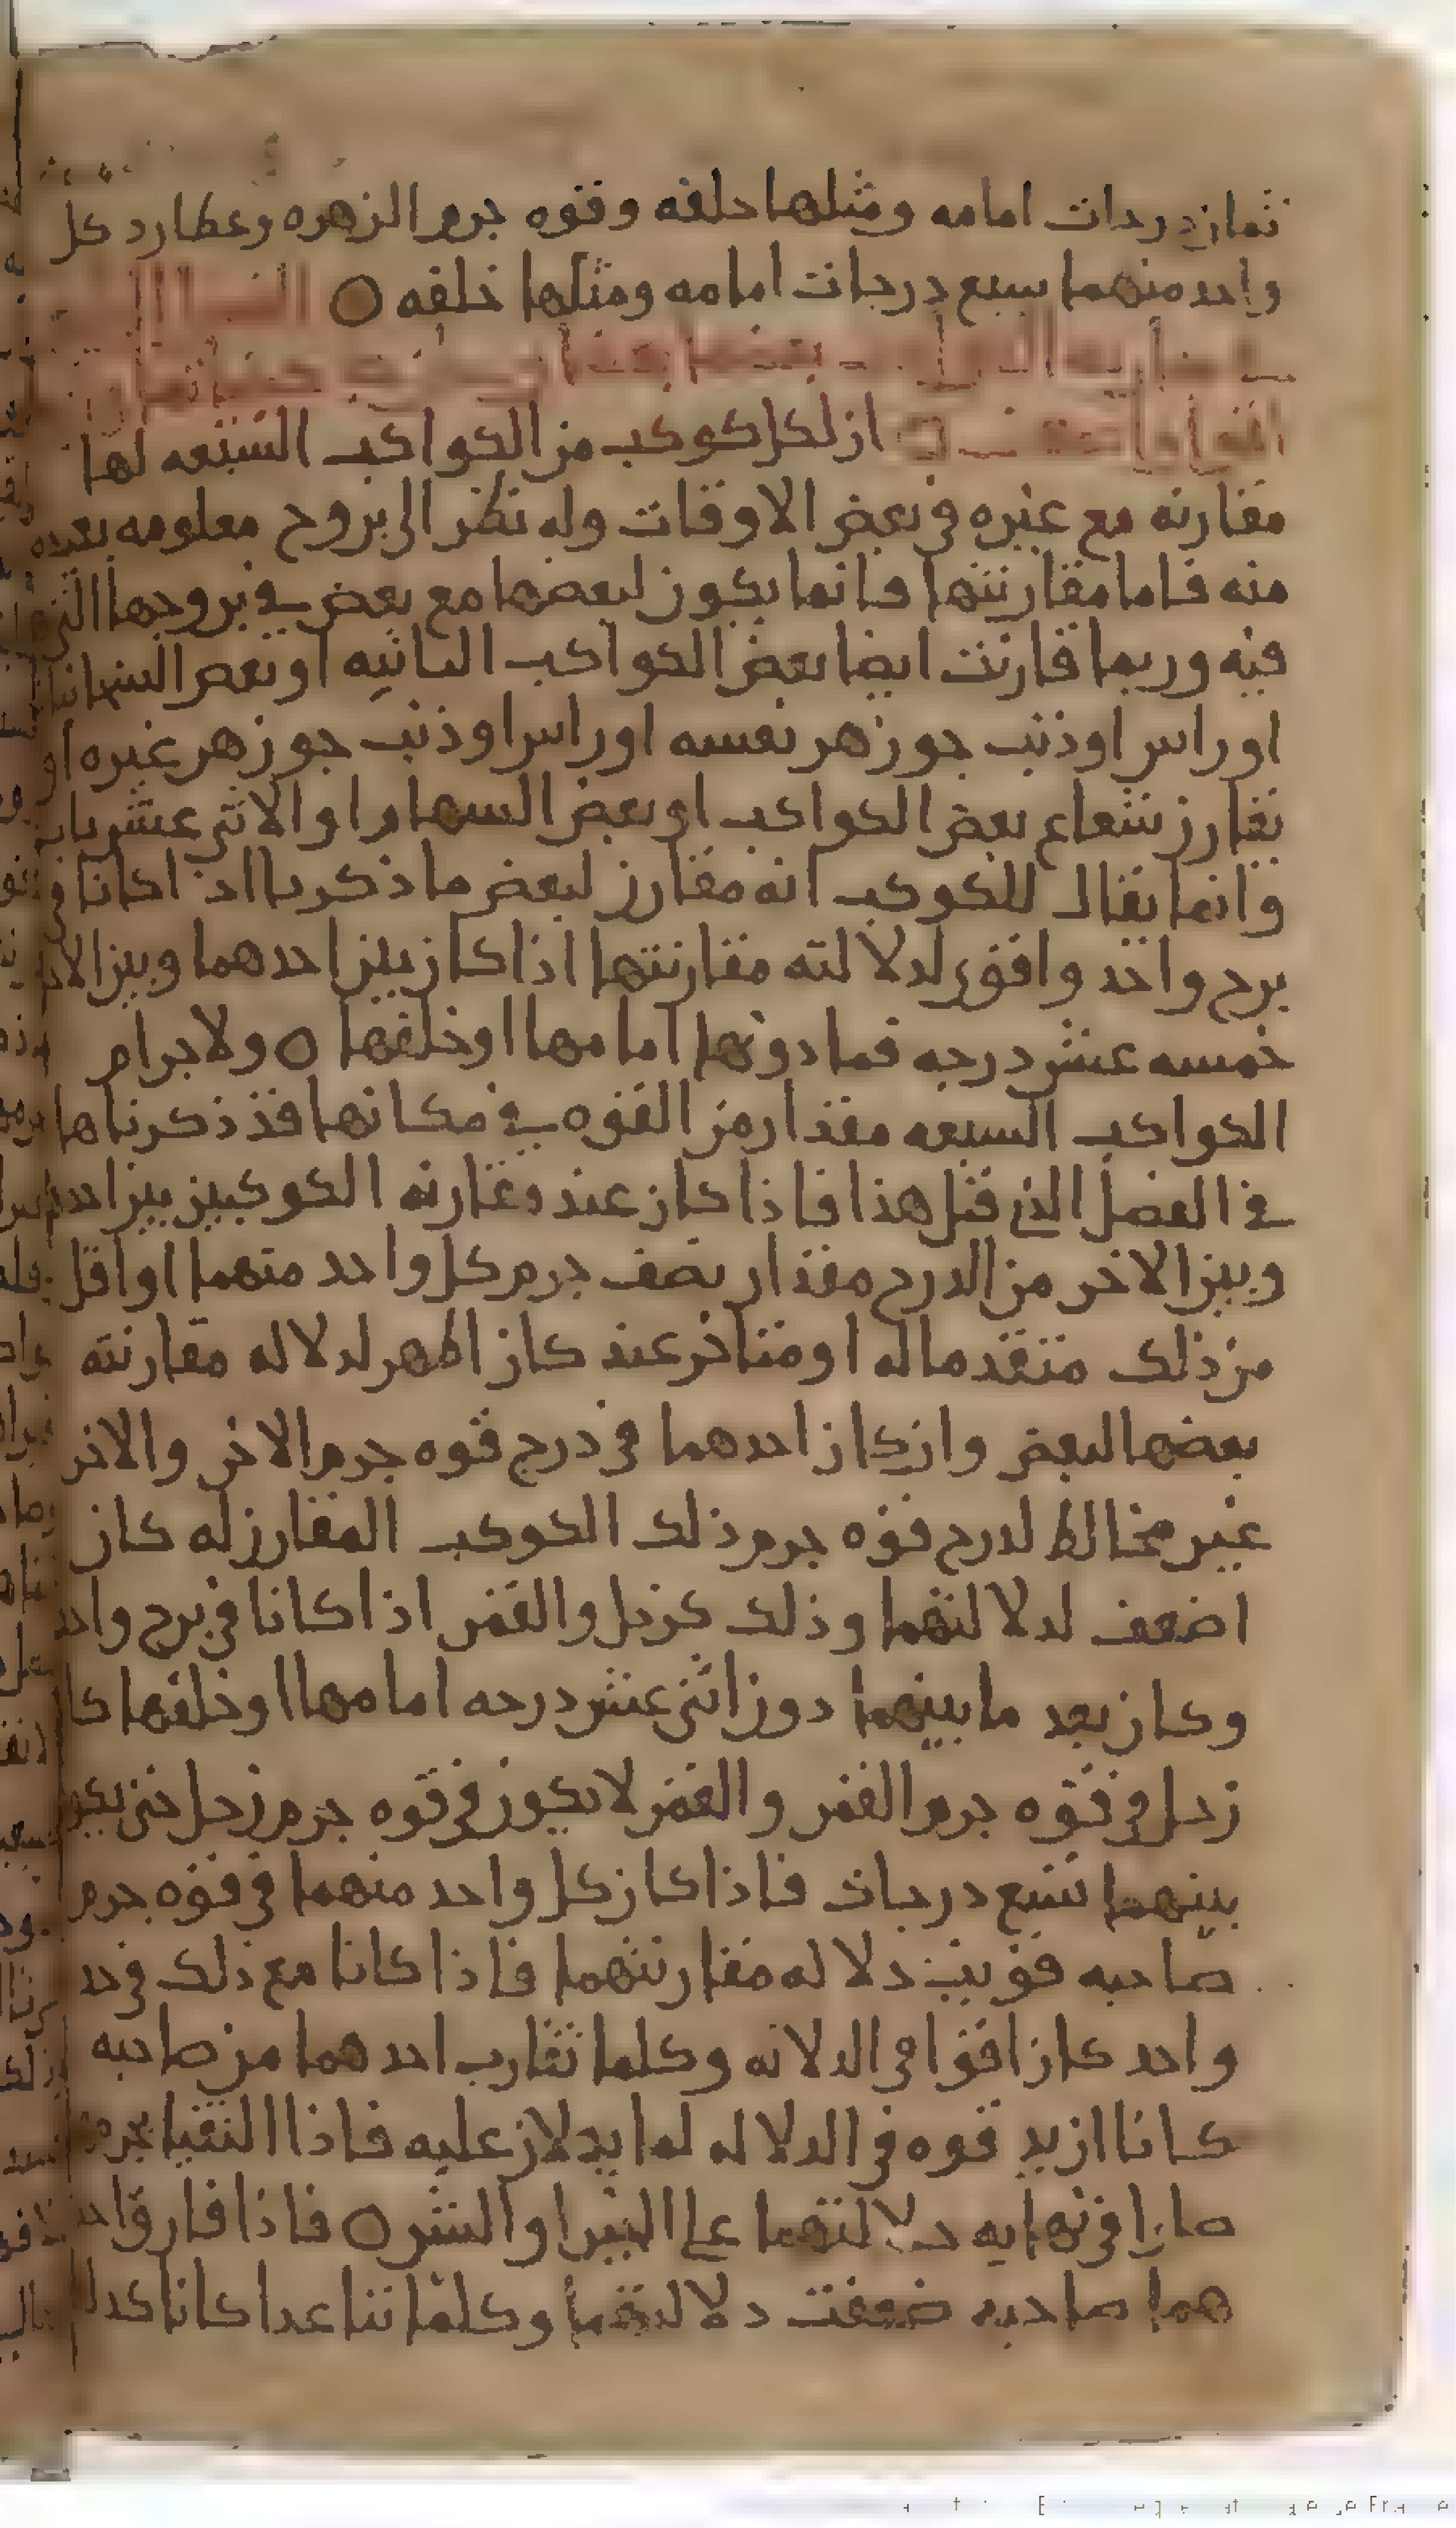 ثمان درجات امامه ومثلها خلفه وقوه جرم الزهره وعطارد كل
واحد منهما سبع درجات امامه ومثلها خلفه ○
ان لكل كوكب من الكواكب السبعه لها
مقارنه مع غيره في بعض الاوقات وله نظر الى بروج معلومه بعيده
منه فاما مقارنتها فانما يكون لبعضها مع بعض في بروجها التي
فيه وربما قارنت ايضا بعض الكواكب الثابتيه او بعض
او راس او ذنب جوزهر نفسه او راس او ذنب جوزهر غيره او
تقارن شعاع بعض الكواكب او بعض السهام او الاثني عشريات
وانما يقال للكوكب انه مقارن لبعض ما ذكرنا اذا كانا في
برج واحد واقوى لدلالته مقارنتها اذا كان بين احدهما وبين الاخر
خمسه عشر درجه فما دونها امامها او خلفها ○ ولاجرام
الكواكب السبعه مقدار من القوه في مكانها قد ذكرناها
في الفصل الذي قبل هذا فاذا كان عند مقارنه الكوكبين بين احدهما
وبين الاخر من الدرج مقدار نصف جرم كل واحد منهما او اقل
من ذلك متقدما له او متاخر عنه كان اظهر لدلاله مقارنته
بعضها لبعض وان كان احدهما في درج قوه جرم الاخر والاخر
غير مخالط لدرج قوه جرم ذلك الكوكب المقارن له كان
اضعف لدلالتهما وذلك كزحل والقمر اذا كانا في برج واحد
وكان بعد ما بينهما دون اثني عشر درجه امامها او خلفها كان
زحل في قوه جرم القمر والقمر لا يكون في قوه جرم زحل حتى يكون
بينهما تسع درجات فاذا كان كل واحد منهما في قوه جرم
صاحبه قويت دلاله مقارنتهما فاذا كانا مع ذلك في حد
واحد كان اقوا في الدلاله وكلما تقارب احدهما من صاحبه
كانا ازيد قوه في الدلاله لما يدلان عليه فاذا التقيا بجرم
صارا في نهايه دلالتهما على الخير او الشر ○ فاذا فارق احد
هما صاحبه ضعفت دلالتهما وكلما تباعدا كانا كذلك